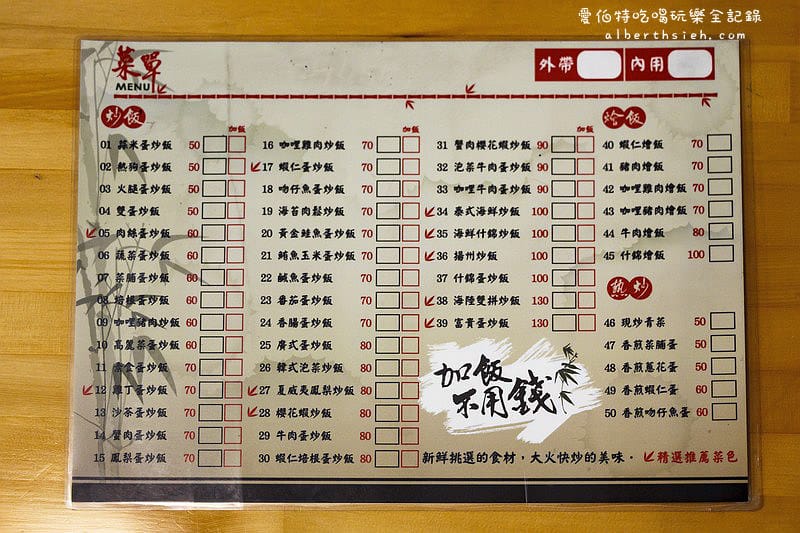 愛伯特吃喝玩樂全記錄
alberthsieh.com
菜單
MENU
外帶 內用
炒飯
加飯
01 蒜米蛋炒飯 50
02 熱狗蛋炒飯 50
03 火腿蛋炒飯 50
04 雙蛋炒飯 50
05 肉絲蛋炒飯 60
06 蔬菜蛋炒飯 60
07 菜脯蛋炒飯 60
08 培根蛋炒飯 60
09 咖哩豬肉炒飯 60
10 高麗菜蛋炒飯 60
11 素食蛋炒飯 60
12 雞丁蛋炒飯 60
13 沙茶蛋炒飯 60
14 蟹肉蛋炒飯 70
15 鳳梨蛋炒飯 70
加飯
16 咖哩雞肉炒飯 70
17 蝦仁蛋炒飯 70
18 吻仔魚蛋炒飯 70
19 海苔肉鬆炒飯 70
20 黃金鮭魚蛋炒飯 70
21 鮪魚玉米蛋炒飯 70
22 鹹魚蛋炒飯 70
23 番茄蛋炒飯 70
24 香腸蛋炒飯 70
25 廣式蛋炒飯 80
26 韓式泡菜炒飯 80
27 夏威夷鳳梨炒飯 80
28 櫻花蝦炒飯 80
29 牛肉蛋炒飯 80
30 蝦仁培根蛋炒飯 80
加飯
31 蟹肉櫻花蝦炒飯 90
32 泡菜牛肉蛋炒飯 90
33 咖哩牛肉蛋炒飯 90
34 泰式海鮮炒飯 100
35 海鮮什錦炒飯 100
36 揚州炒飯 100
37 什錦蛋炒飯 100
38 海陸雙拼炒飯 130
39 富貴蛋炒飯 130
加飯
不用錢
燴飯
40 蝦仁燴飯 70
41 豬肉燴飯 70
42 咖哩雞肉燴飯 70
43 咖哩豬肉燴飯 70
44 牛肉燴飯 80
45 什錦燴飯 100
熱炒
46 現炒青菜 50
47 香煎菜脯蛋 50
48 香煎蔥花蛋 50
49 香煎蝦仁蛋 60
50 香煎吻仔魚蛋 60
新鮮挑選的食材，大火快炒的美味。 精選推薦菜色